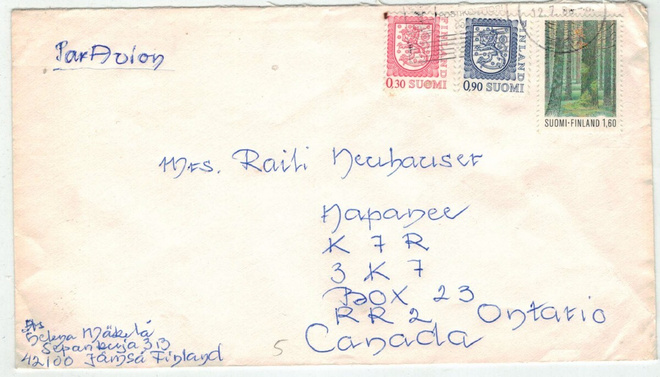 Par Avion
0.30 SUOMI
FINLAND
0.90 SUOMI
FINLAND
SUOMI-FINLAND 1,60
Mrs. Raili Neuhauser
Napanee
K 7 R
3 K 7
BOX 23
RR 2 Ontario
Canada
5
Helena Mäkelä
Sepänkuja 3 B
42100 Jämsä Finland